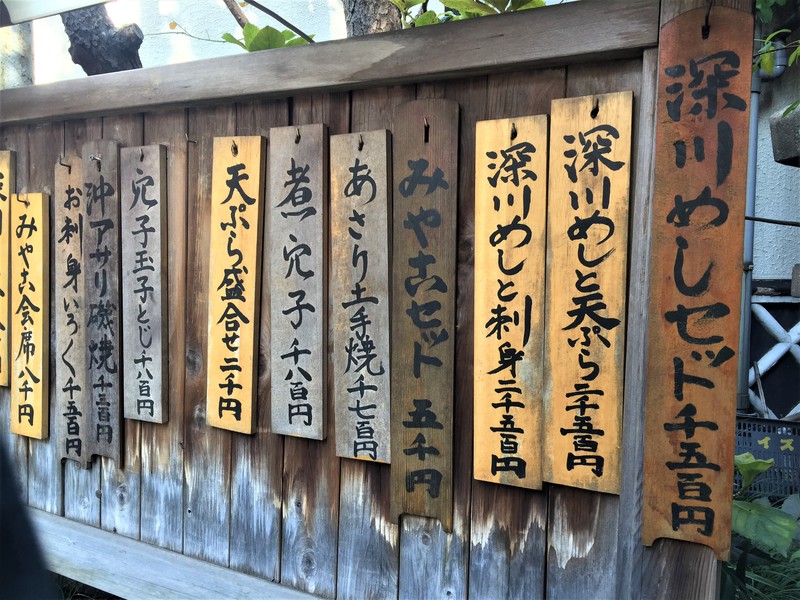 深川めしセット 千五百円
深川めしと天ぷら 二千五百円
深川めしと刺身 二千五百円
みやこセット 五千円
あさり土手焼 千七百円
煮穴子 千八百円
天ぷら盛合せ 二千円
穴子玉子とじ 千八百円
沖アサリ磯焼 千三百円
お刺身いろ〱 千五百円
みやこ会席 八千円
イス